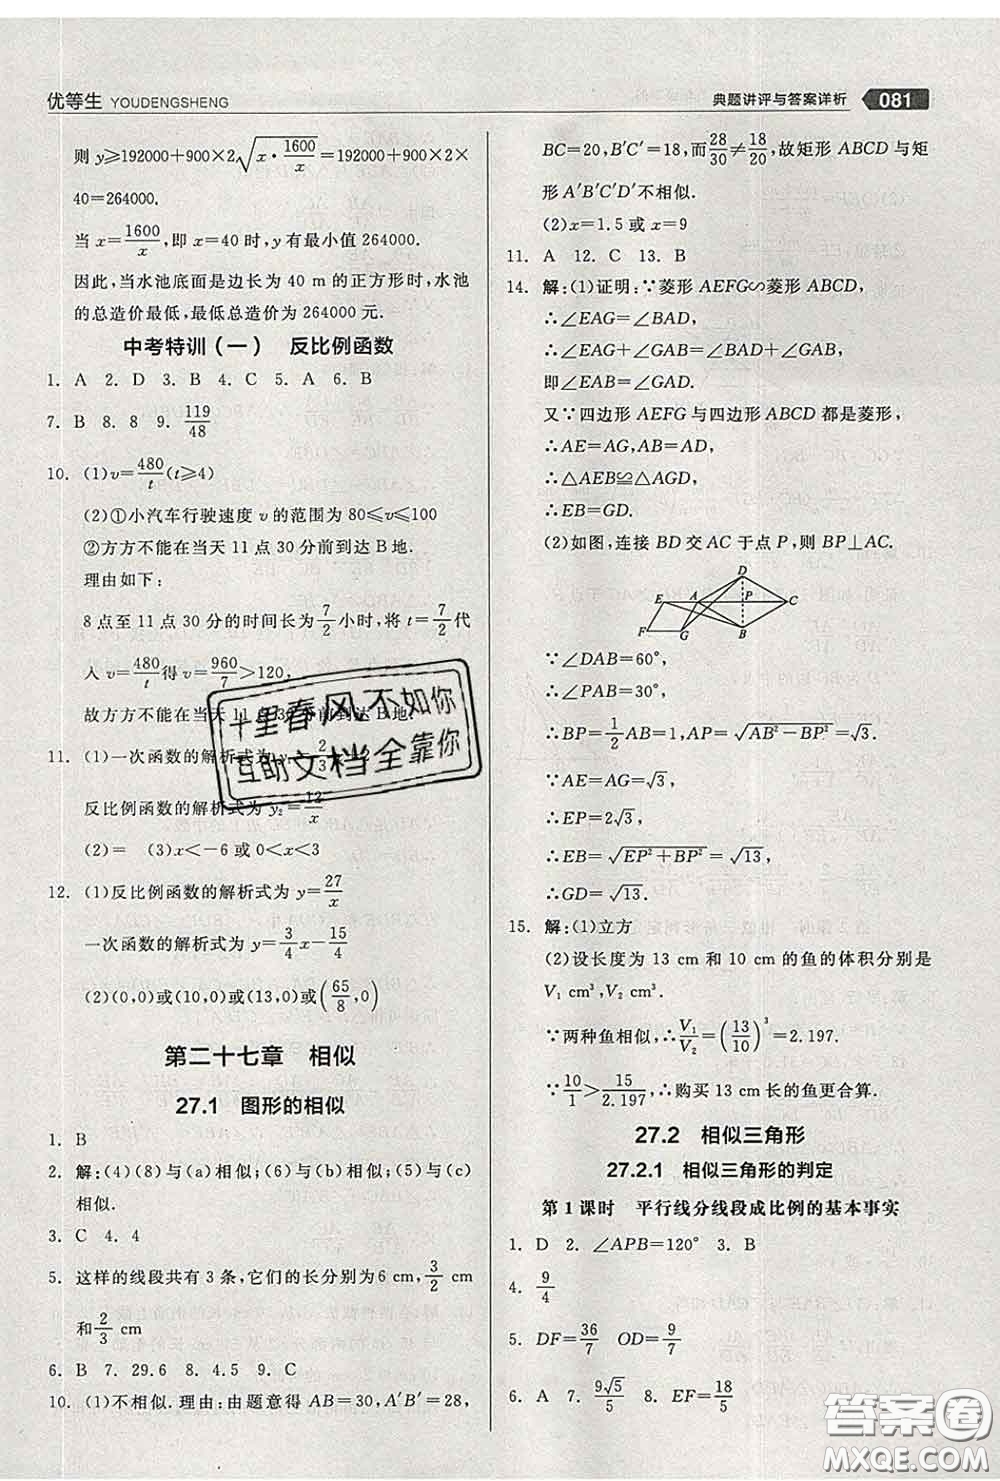 优等生 YOUDENGSHENG
典题讲评与答案详析 081
则 y≥192000+900×2√(x·1600/x)=192000+900×2×
40=264000.
当 x=1600/x,即 x=40 时,y 有最小值 264000.
因此,当水池底面是边长为 40 m 的正方形时,水池
的总造价最低,最低总造价为 264000 元.
中考特训(一) 反比例函数
1. A 2. D 3. B 4. C 5. A 6. B
7. B 8. 8 9. 119/48
10. (1)v=480/t(t≥4)
(2)①小汽车行驶速度 v 的范围为 80≤v≤100
②方方不能在当天 11 点 30 分前到达 B 地.
理由如下:
8 点至 11 点 30 分的时间长为 7/2 小时,将 t=7/2 代
入 v=480/t 得 v=960/7>120,
故方方不能在当天 11 点 30 分前到达 B 地.
11. (1)一次函数的解析式为
反比例函数的解析式为 y₂=12/x
(2)= (3)x<-6 或 0<x<3
12. (1)反比例函数的解析式为 y=27/x
一次函数的解析式为 y=3/4x-15/4
(2)(0,0)或(10,0)或(13,0)或(65/8,0)
第二十七章 相似
27.1 图形的相似
1. B
2. 解:(4)(8)与(a)相似;(6)与(b)相似;(5)与(c)
相似.
3. C 4. 4
5. 这样的线段共有 3 条,它们的长分别为6 cm,3/2 cm
和2/3 cm
6. B 7. 29.6 8. 4.5 9. C
10. (1)不相似.理由:由题意得 AB=30,A′B′=28,
BC=20,B′C′=18,而28/30≠18/20,故矩形 ABCD 与矩
形 A′B′C′D′不相似.
(2)x=1.5 或 x=9
11. A 12. C 13. B
14. 解:(1)证明:∵菱形 AEFG∽菱形 ABCD,
∴∠EAG=∠BAD,
∴∠EAG+∠GAB=∠BAD+∠GAB,
即∠EAB=∠GAD.
又∵四边形 AEFG 与四边形 ABCD 都是菱形,
∴AE=AG,AB=AD,
∴△AEB≌△AGD.
∴EB=GD.
(2)如图,连接 BD 交 AC 于点 P,则 BP⊥AC.
D
E A P C
F G B
∵∠DAB=60°,
∴∠PAB=30°,
∴BP=1/2AB=1,AP=√(AB²-BP²)=√3.
∵AE=AG=√3,
∴EP=2√3,
∴EB=√(EP²+BP²)=√13,
∴GD=√13.
15. 解:(1)立方
(2)设长度为 13 cm 和 10 cm 的鱼的体积分别是
V₁ cm³,V₂ cm³.
∵两种鱼相似,∴V₁/V₂=(13/10)³=2.197.
∵10/1>15/2.197,∴购买 13 cm 长的鱼更合算.
27.2 相似三角形
27.2.1 相似三角形的判定
第 1 课时 平行线分线段成比例的基本事实
1. D 2. ∠APB=120° 3. B
4. 9/4
5. DF=36/7 OD=9/7
6. A 7. 9√5/5 8. EF=18/5
十里春风不如你
互助文档全靠你
答案圈
MXQE.COM